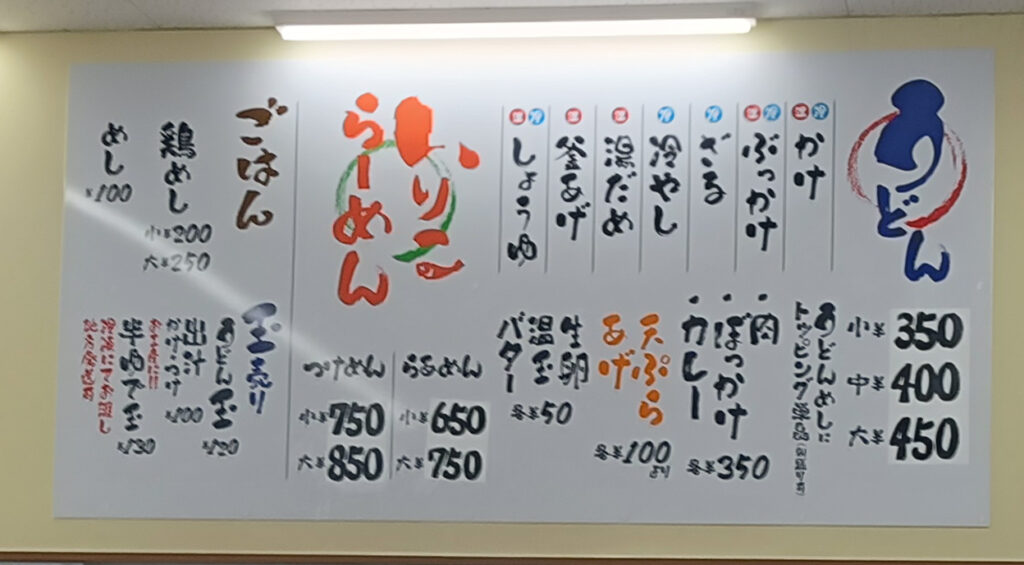 うどん
温 冷 かけ
温 冷 ぶっかけ
冷 ざる
冷 冷やし
温 湯だめ
温 釜あげ
温 冷 しょうゆ
小¥350
中¥400
大¥450
うどんめしに
トッピング単品
・肉
・ぼっかけ
・カレー
各¥350
天ぷら
あげ
各¥100より
生卵
温玉
バター
各¥50
いりこ
らーめん
らあめん
小¥650
大¥750
つけめん
小¥750
大¥850
ごはん
鶏めし
小¥200
大¥250
めし
¥100
玉売り
うどん玉
¥120
出汁
かけ・つけ
¥100
半ゆで玉
¥130